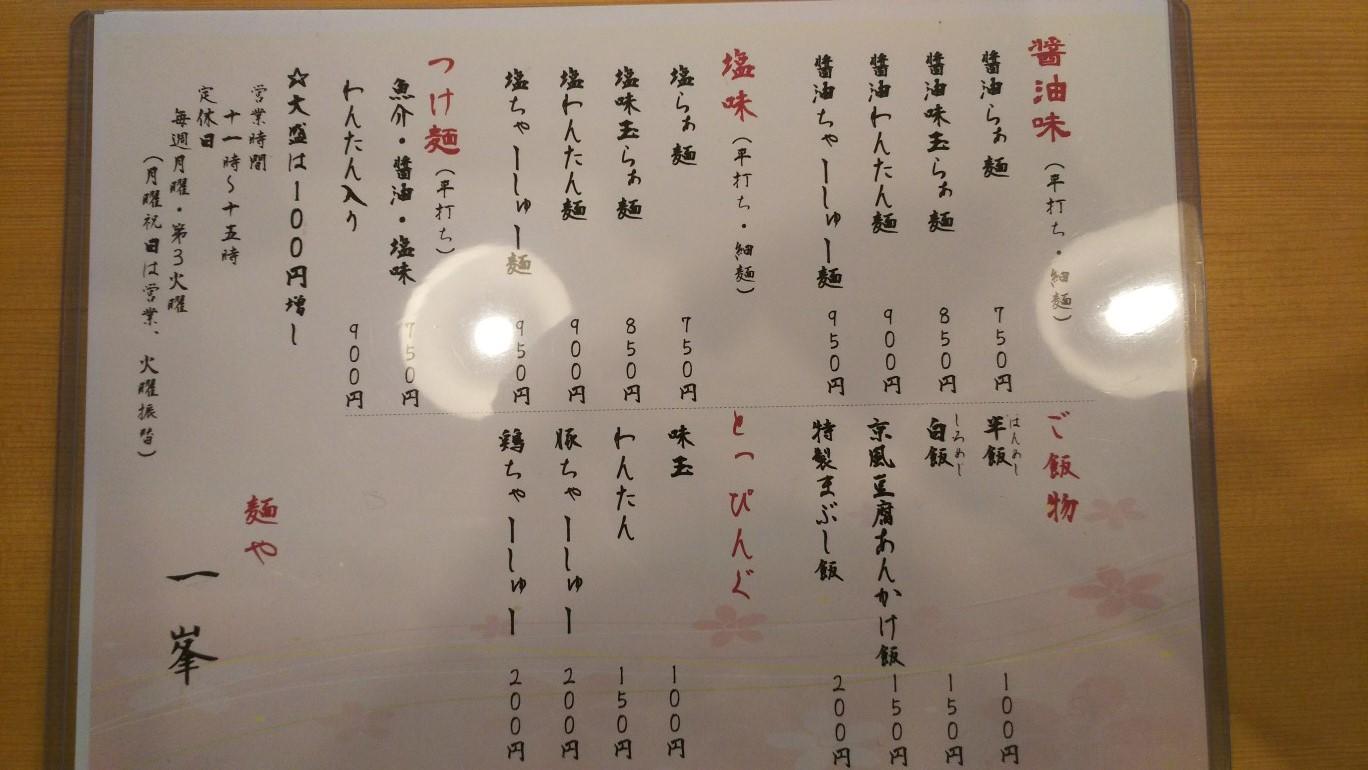 醤油味（平打ち・細麺）
醤油らぁ麺 750円
醤油味玉らぁ麺 850円
醤油わんたん麺 900円
醤油ちゃーしゅー麺 950円
塩味（平打ち・細麺）
塩らぁ麺 750円
塩味玉らぁ麺 850円
塩わんたん麺 900円
塩ちゃーしゅー麺 950円
つけ麺（平打ち）
魚介・醤油・塩味 750円
わんたん入り 900円
☆大盛は100円増し
営業時間
十一時～十五時
定休日
毎週月曜・第3火曜
（月曜祝日は営業、火曜振替）
ご飯物
半飯 はんめし 100円
白飯 しろめし 150円
京風豆腐あんかけ飯 150円
特製まぶし飯 200円
とっぴんぐ
味玉 100円
わんたん 150円
豚ちゃーしゅー 200円
鶏ちゃーしゅー 200円
麺や
一峯